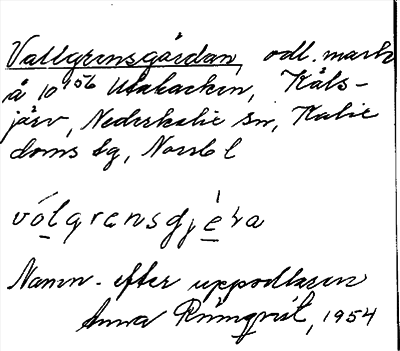 Vallgrensgärdan, odl. mark
å 10 156 Utabacken, Kåls-
järv, Nederkalix sn, Kalix
doms tg, Norrb l
vólgrensgjé̱ɽa
Namn efter uppodlaren
Anna Rönnqvist, 1954